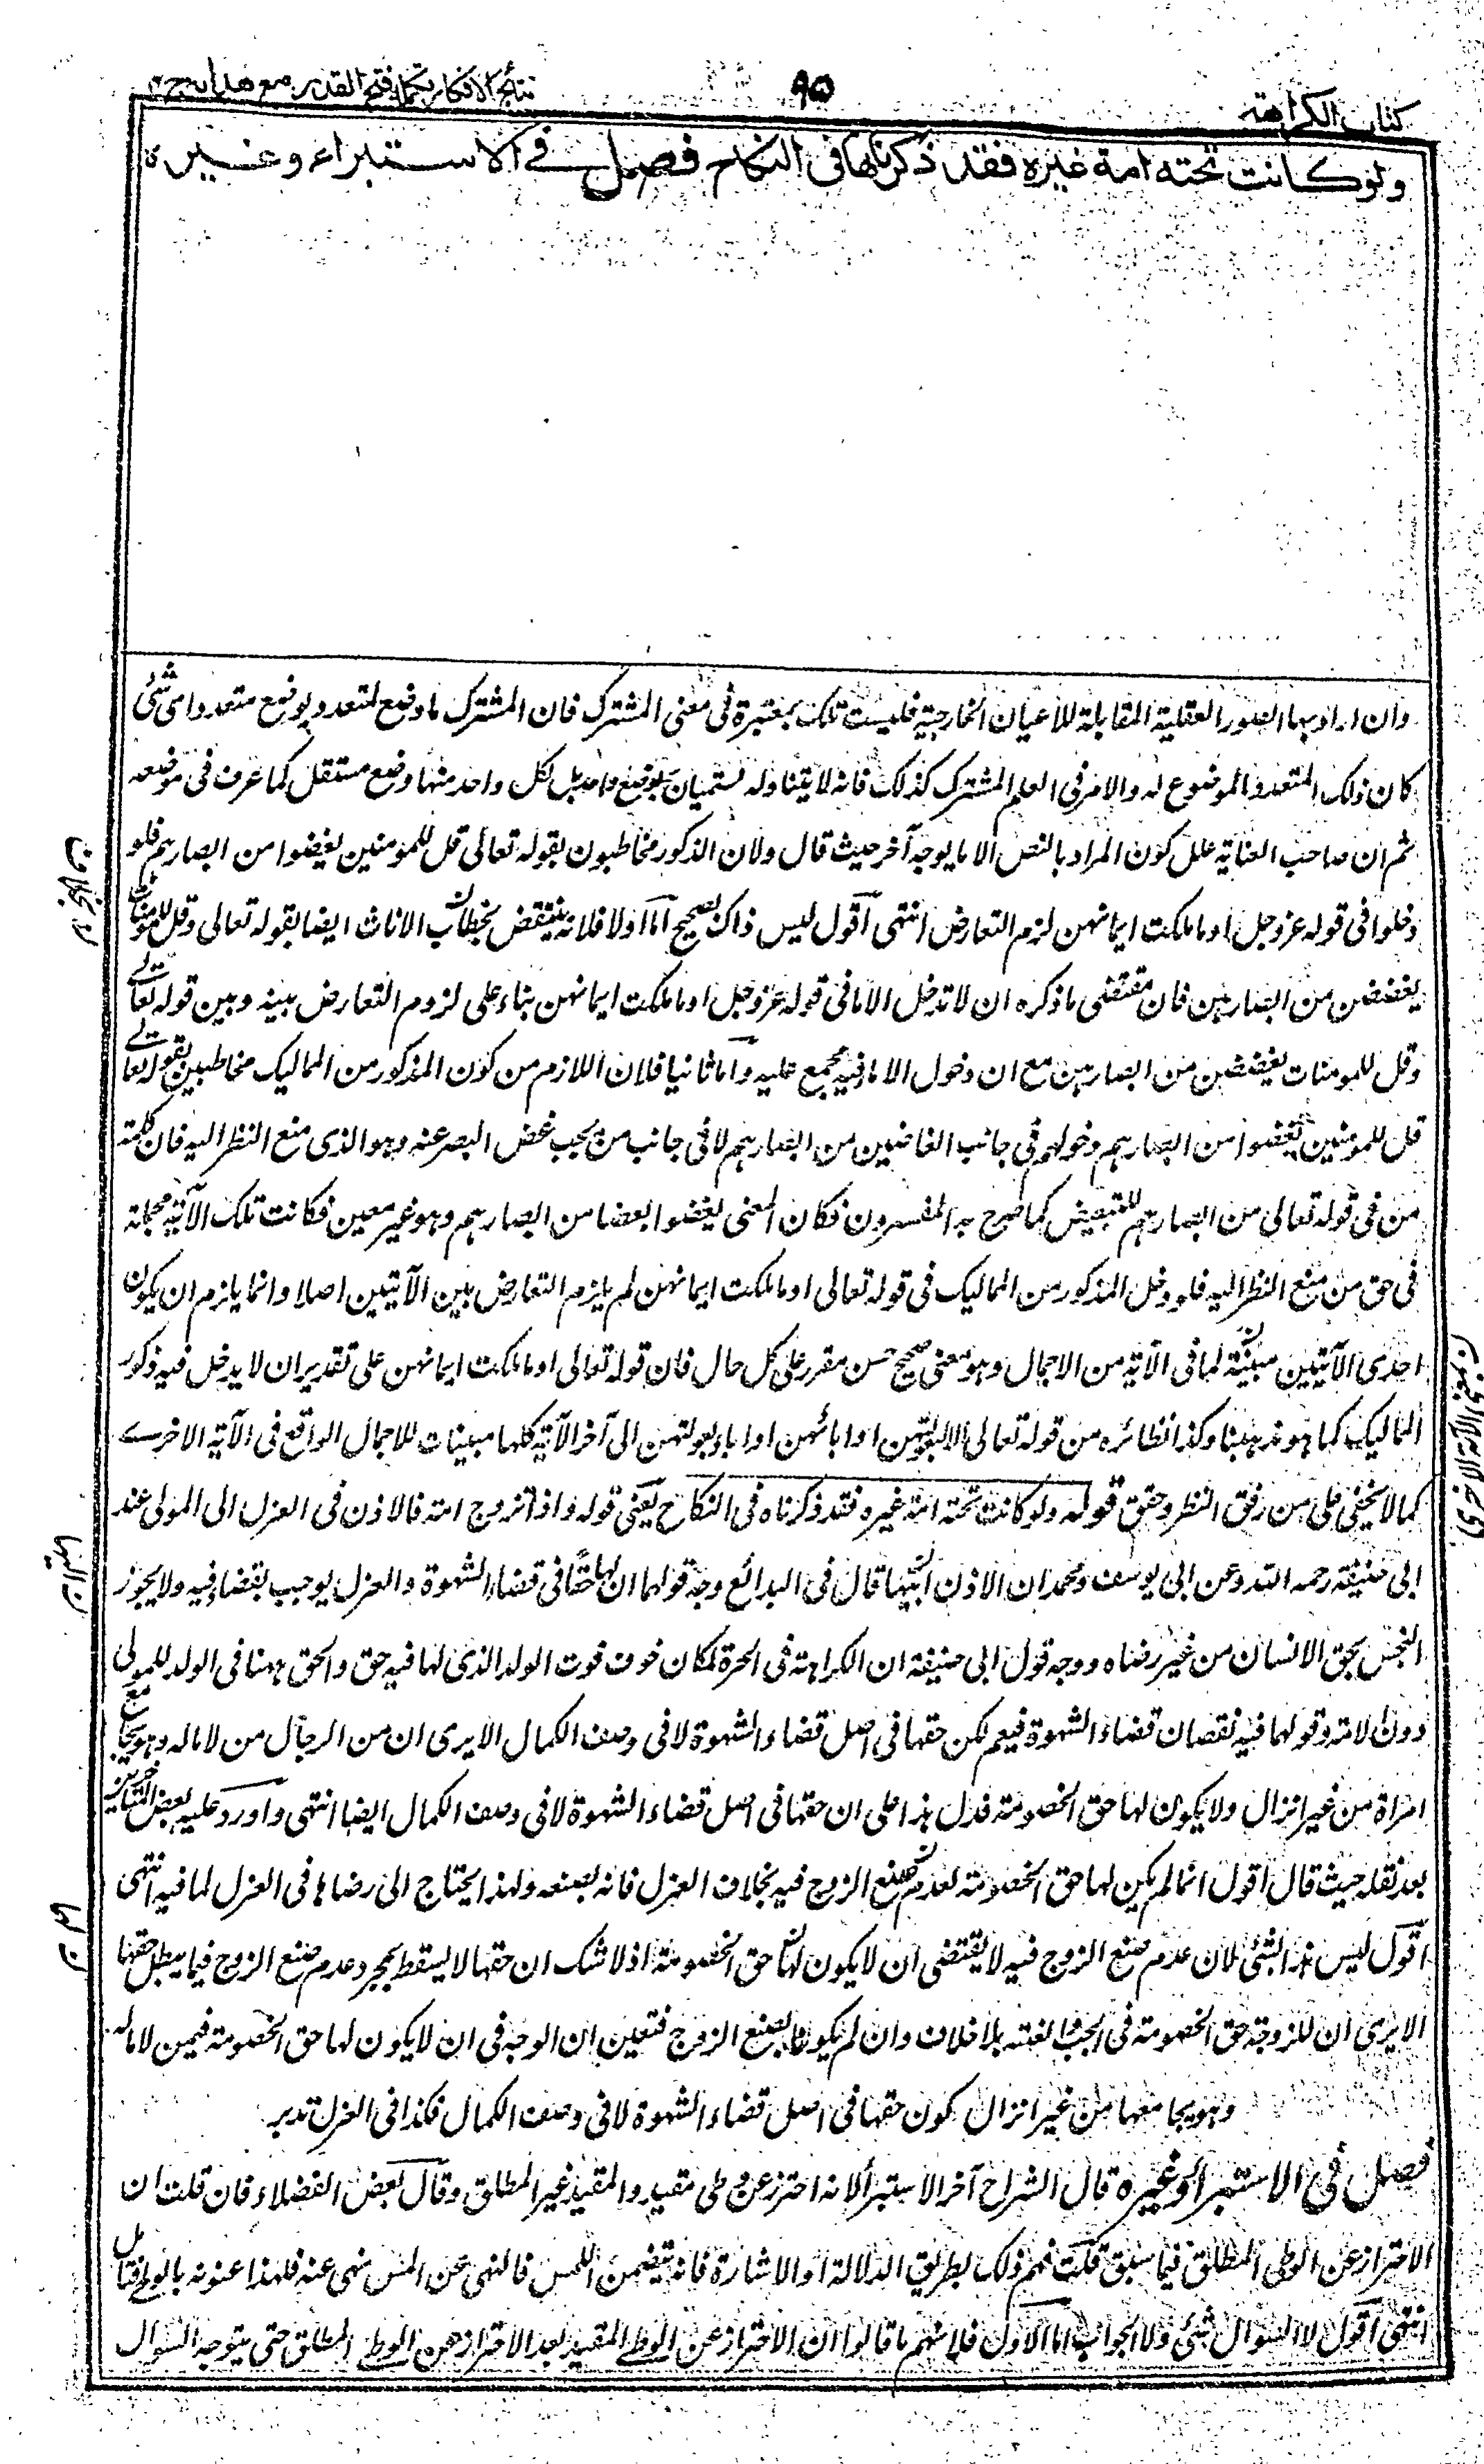 كتاب الكراهة
٩٥
نتائج الافكار تكملة فتح القدير مع هدايه ج
ولو كانت تحته امة غيره فقد ذكرناها فى النكاح فصل فى الاستبراء وغيره
وان اراد بها الصور العقلية المقابلة للاعيان الخارجية فليست تلك بمعتبرة فى معنى المشترك فان المشترك ما وضع لمتعدد بوضع متعدد اى شئ
كان ذلك المتعدد الموضوع له والامر فى العلم المشترك كذلك فانه لا يتناوله لمسميان بوضع واحد بل لكل واحد منها وضع مستقل كما عرف فى موضعه
ثم ان صاحب العناية علل كون المراد بالنص الاماء بوجه آخر حيث قال ولان الذكور مخاطبون بقوله تعالى قل للمومنين يغضوا من ابصارهم فلو
دخلوا فى قوله عز وجل او ما ملكت ايمانهن لزم التعارض انتهى اقول ليس ذاك بصحيح اما اولا فلانه ينتقض بخطاب الاناث ايضا بقوله تعالى وقل للمومنات
يغضضن من ابصارهن فان مقتضى ما ذكره ان لا تدخل الاما فى قوله عز وجل او ما ملكت ايمانهن بناء على لزوم التعارض بينه وبين قوله تعالى
وقل للمومنات يغضضن من ابصارهن مع ان دخول الاماء فيه مجمع عليه واما ثانيا فلان اللازم من كون المذكور من المماليك مخاطبين بقوله تعالى
قل للمومنين يغضوا من ابصارهم دخولهم فى جانب الغاضين من ابصارهم لا فى جانب من يجب غض البصر عنه وهو الذى منع النظر اليه فان كلمة
من فى قوله تعالى من ابصارهم للتبعيض كما صرح به المفسرون فكان المعنى يغضوا بعضا من ابصارهم وهو غير معين فكانت تلك الآية مجملة
فى حق من منع النظر اليه فلو دخل المذكور من المماليك فى قوله تعالى او ما ملكت ايمانهن لم يلزم التعارض بين الآيتين اصلا وانما يلزم ان يكون
احدى الآيتين مبينة لما فى الآية من الاجمال وهو معنى صحيح حسن مقرر على كل حال فان قوله تعالى او ما ملكت ايمانهن على تقدير ان لا يدخل فيه ذكور
المماليك كما هو مذهبنا وكذا نظائره من قوله تعالى الا لبعولتهن او ابائهن او اباء بعولتهن الى آخر الآية كلها مبينات للاجمال الواقع فى الآية الاخرے
كما لا يخفى على من رفق النظر وحقق قوله ولو كانت تحته امة غيره فقد ذكرناه فى النكاح يعنى قوله واذا تزوج امة فالاذن فى العزل الى المولى عند
ابى حنيفة رحمه الله وعن ابى يوسف ومحمد ان الاذن اليها قال فى البدائع وجه قولهما ان لها حقا فى قضاء الشهوة والعزل يوجب نقصا فيه ولا يجوز
البخس بحق الانسان من غير رضاه ووجه قول ابى حنيفة ان الكراهة فى الحرة لمكان خوف فوت الولد الذى لها فيه حق والحق ههنا فى الولد للمولى
دون الامة وقولهما فيه نقصان قضاء الشهوة فنعم لكن حقها فى اصل قضاء الشهوة لا فى وصف الكمال الا يرى ان من الرجال من لا ماء له وهو يجامع
امراة من غير انزال ولا يكون لها حق الخصومة فدل هذا على ان حقها فى اصل قضاء الشهوة لا فى وصف الكمال ايضا انتهى واورد عليه بعض المتاخرين
بعد نقله حيث قال اقول انما لم يكن لها حق الخصومة لعدم صنع الزوج فيه بخلاف العزل فانه بصنعه ولهذا يحتاج الى رضاها فى العزل لما فيه انتهى
اقول ليس هذا بشئ لان عدم صنع الزوج فيه لا يقتضى ان لا يكون لها حق الخصومة اذ لا شك ان حقها لا يسقط بمجرد عدم صنع الزوج فيما يبطل حقها
الا يرى ان للزوجة حق الخصومة فى الجب والعنة بلا خلاف وان لم يكونا بصنع الزوج فتعين ان الوجه فى ان لا يكون لها حق الخصومة فيمن لا ماء له
وهو يجامعها من غير انزال كون حقها فى اصل قضاء الشهوة لا فى وصف الكمال فكذا فى العزل تدبر
فصل فى الاستبراء وغيره قال الشراح آخر الاستبراء لانه احتراز عن وطى مقيد والمقيد غير المطلق وقال بعض الفضلاء فان قلت ان
الاحتراز عن الوطى المطلق فيما سبق قلت فهم ذلك بطريق الدلالة او الاشارة فانه يتضمن اللمس فالنهى عن المس نهى عنه فلهذا عنونه بالوطى فتامل
انتهى اقول لا السوال بشئ ولا الجواب اما الاول فلانهم ما قالوا ان الاحتراز عن الوطے المقيد بعد الاحتراز عن الوطے المطلق حتى يتوجه السوال